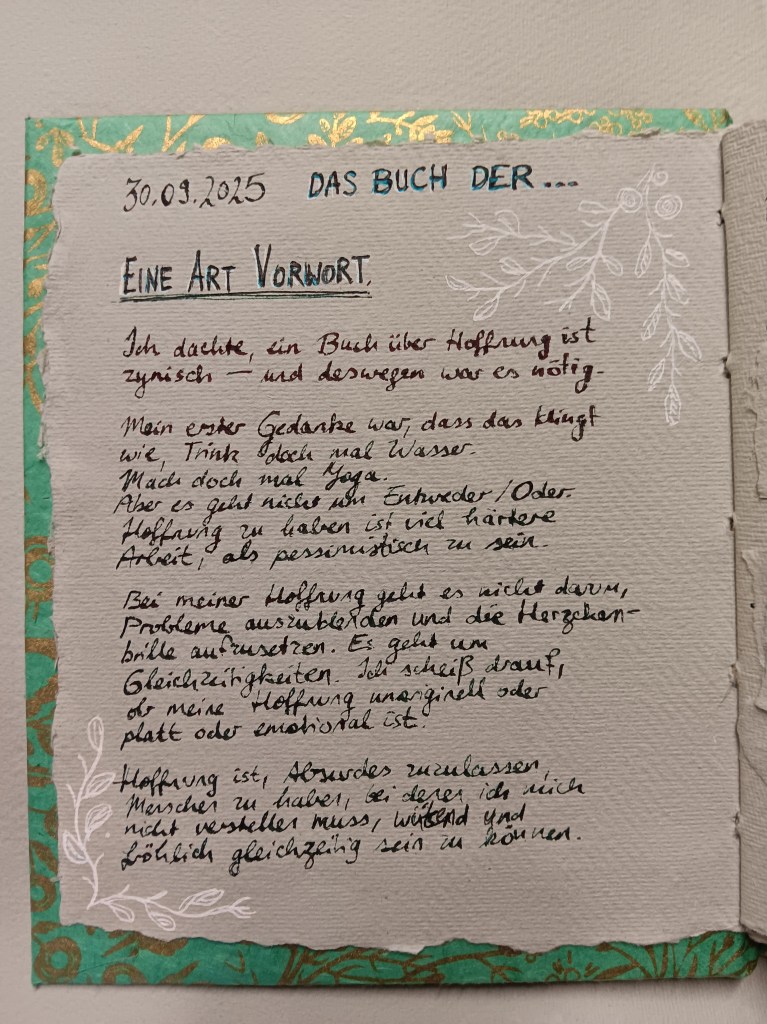 30.09.2025 DAS BUCH DER...
EINE ART VORWORT.
Ich dachte, ein Buch über Hoffnung ist
zynisch – und deswegen war es nötig.
Mein erster Gedanke war, dass das klingt
wie, Trink doch mal Wasser.
Mach doch mal Yoga.
Aber es geht nicht um Entweder/Oder.
Hoffnung zu haben ist viel härtere
Arbeit, als pessimistisch zu sein.
Bei meiner Hoffnung geht es nicht darum,
Probleme auszublenden und die Herzchen-
brille aufzusetzen. Es geht um
Gleichzeitigkeiten. Ich scheiß drauf,
ob meine Hoffnung unoriginell oder
platt oder emotional ist.
Hoffnung ist, Absurdes zuzulassen,
Menschen zu haben, bei denen ich mich
nicht verstellen muss, wütend und
fröhlich gleichzeitig sein zu können.